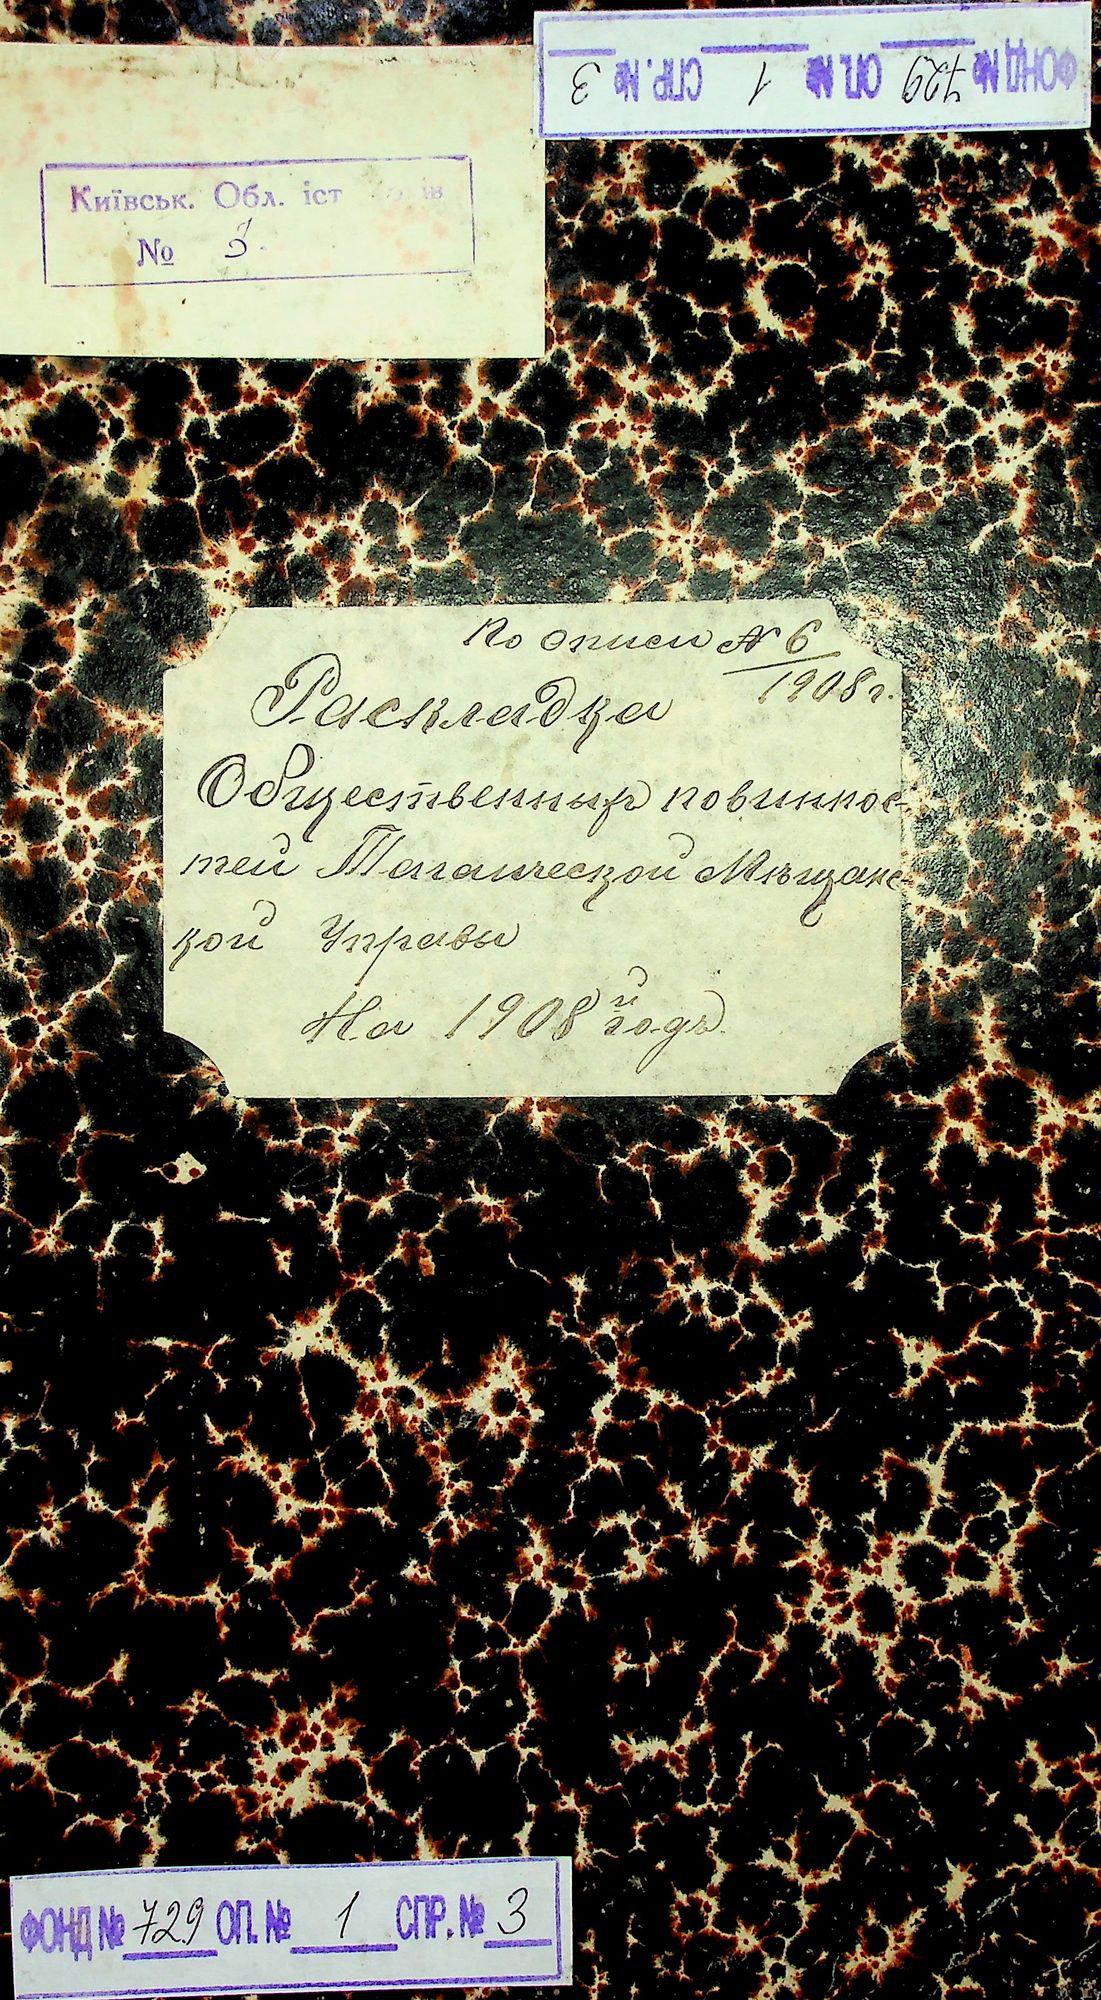 ФОНД № 729 ОП. № 1 СПР. № 3
Київськ. Обл. іст
№ 3.
По описи № 6
1908 г.
Раскладка
Общественныхъ повиннос-
тей Таганческой Мѣщанс-
кой Управы
На 1908й годъ.
ФОНД № 729 ОП. № 1 СПР. № 3